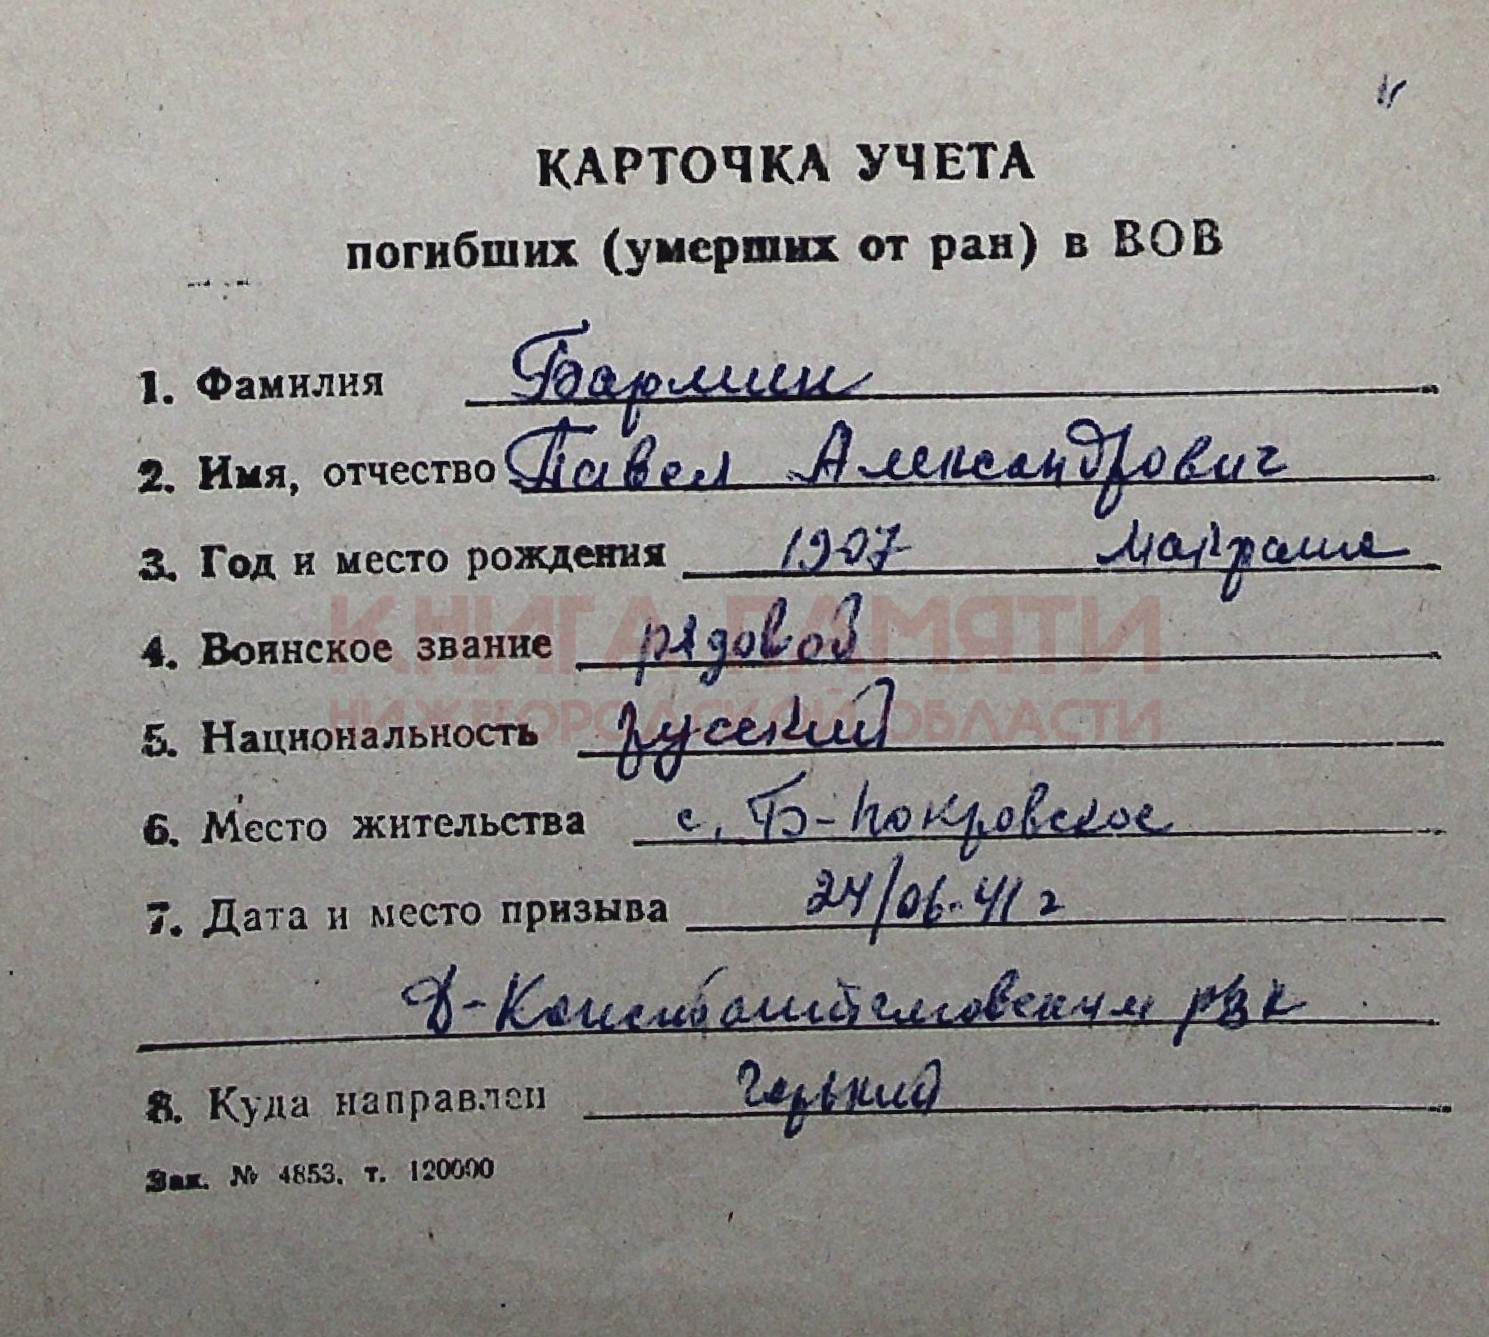 КАРТОЧКА УЧЕТА
погибших (умерших от ран) в ВОВ
1. Фамилия Бармин
2. Имя, отчество Павел Александрович
3. Год и место рождения 1907
4. Воинское звание рядовой
КНИГА ПАМЯТИ
НИЖЕГОРОДСКОЙ ОБЛАСТИ
5. Национальность русский
6. Место жительства с. Б-Покровское
7. Дата и место призыва 24/06-41 г
Д-Константиновским рвк
8. Куда направлен Горький
Зак. № 4853. т. 120000